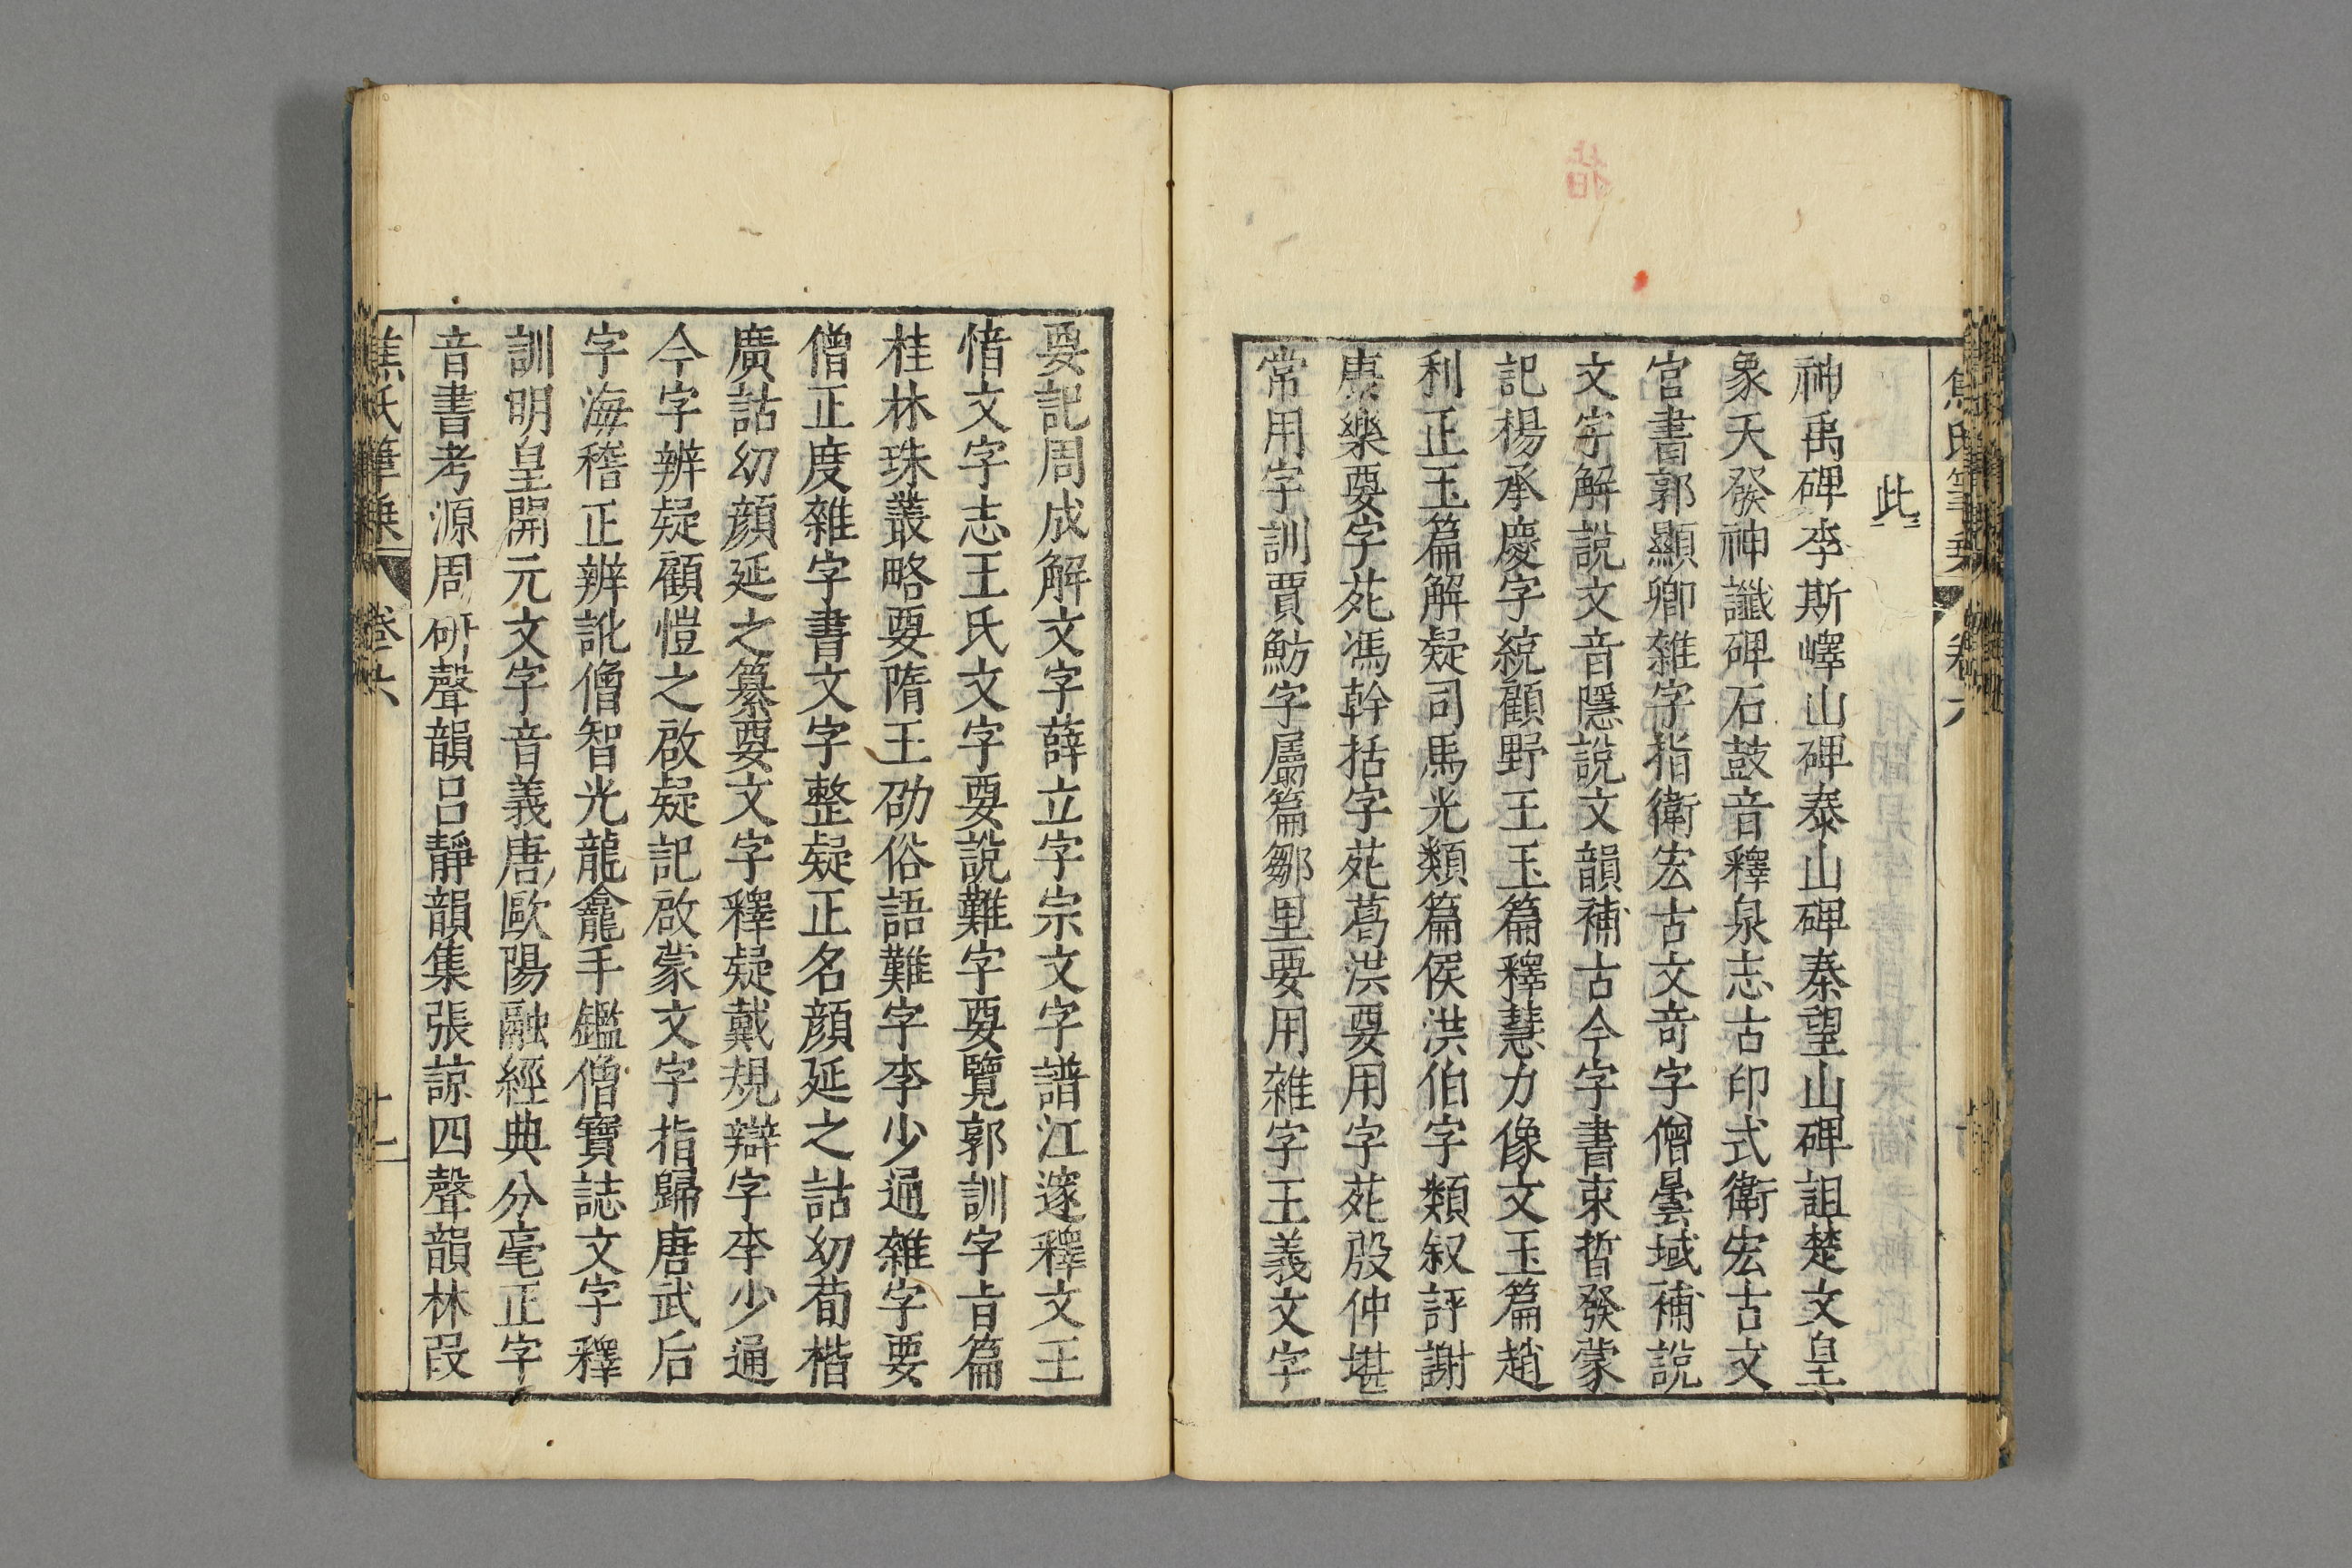 焦氏筆乘 卷六
此
神禹碑李斯嶧山碑泰山碑秦望山碑詛楚文皇
象天發神讖碑石鼓音釋泉志古印式衛宏古文
官書郭顯卿雜字指衛宏古文奇字僧曇域補說
文字解說文音隱說文韻補古今字書束晳發蒙
記楊承慶字統顧野王玉篇釋慧力像文玉篇趙
利正玉篇解疑司馬光類篇侯洪伯字類叙評謝
康樂要字苑馮幹括字苑葛洪要用字苑殷仲堪
常用字訓賈魴字屬篇鄒里要用雜字王義文字
要記周成解文字薛立字宗文字譜江邃釋文王
愔文字志王氏文字要說難字要覽郭訓字㫖篇
桂林珠叢略要隋王劭俗語難字李少通雜字要
僧正度雜字書文字整疑正名顔延之詁幼荀楷
廣詁幼顔延之纂要文字釋疑戴規辯字李少通
今字辨疑顧愷之啟疑記啟蒙文字指歸唐武后
字海稽正辨訛僧智光龍龕手鑑僧寶誌文字釋
訓明皇開元文字音義唐歐陽融經典分毫正字
音書考源周研聲韻呂靜韻集張諒四聲韻林叚
焦氏筆乘 卷六